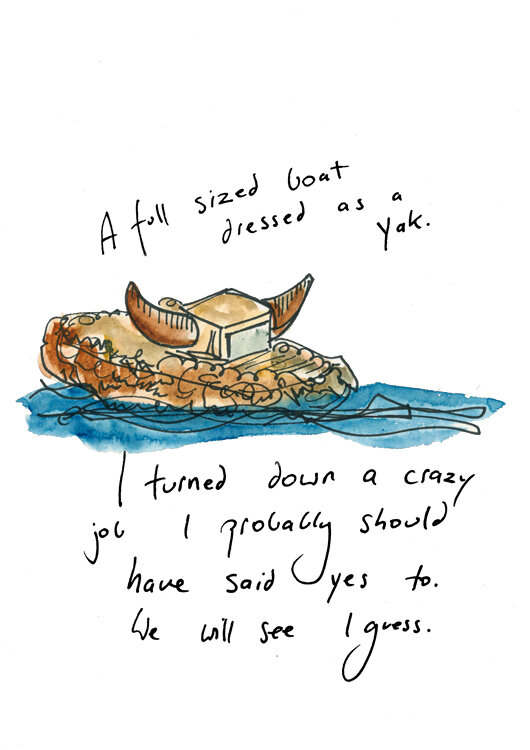 A full sized boat
dressed as a
yak.
I turned down a crazy
job I probably should
have said yes to.
We will see I guess.